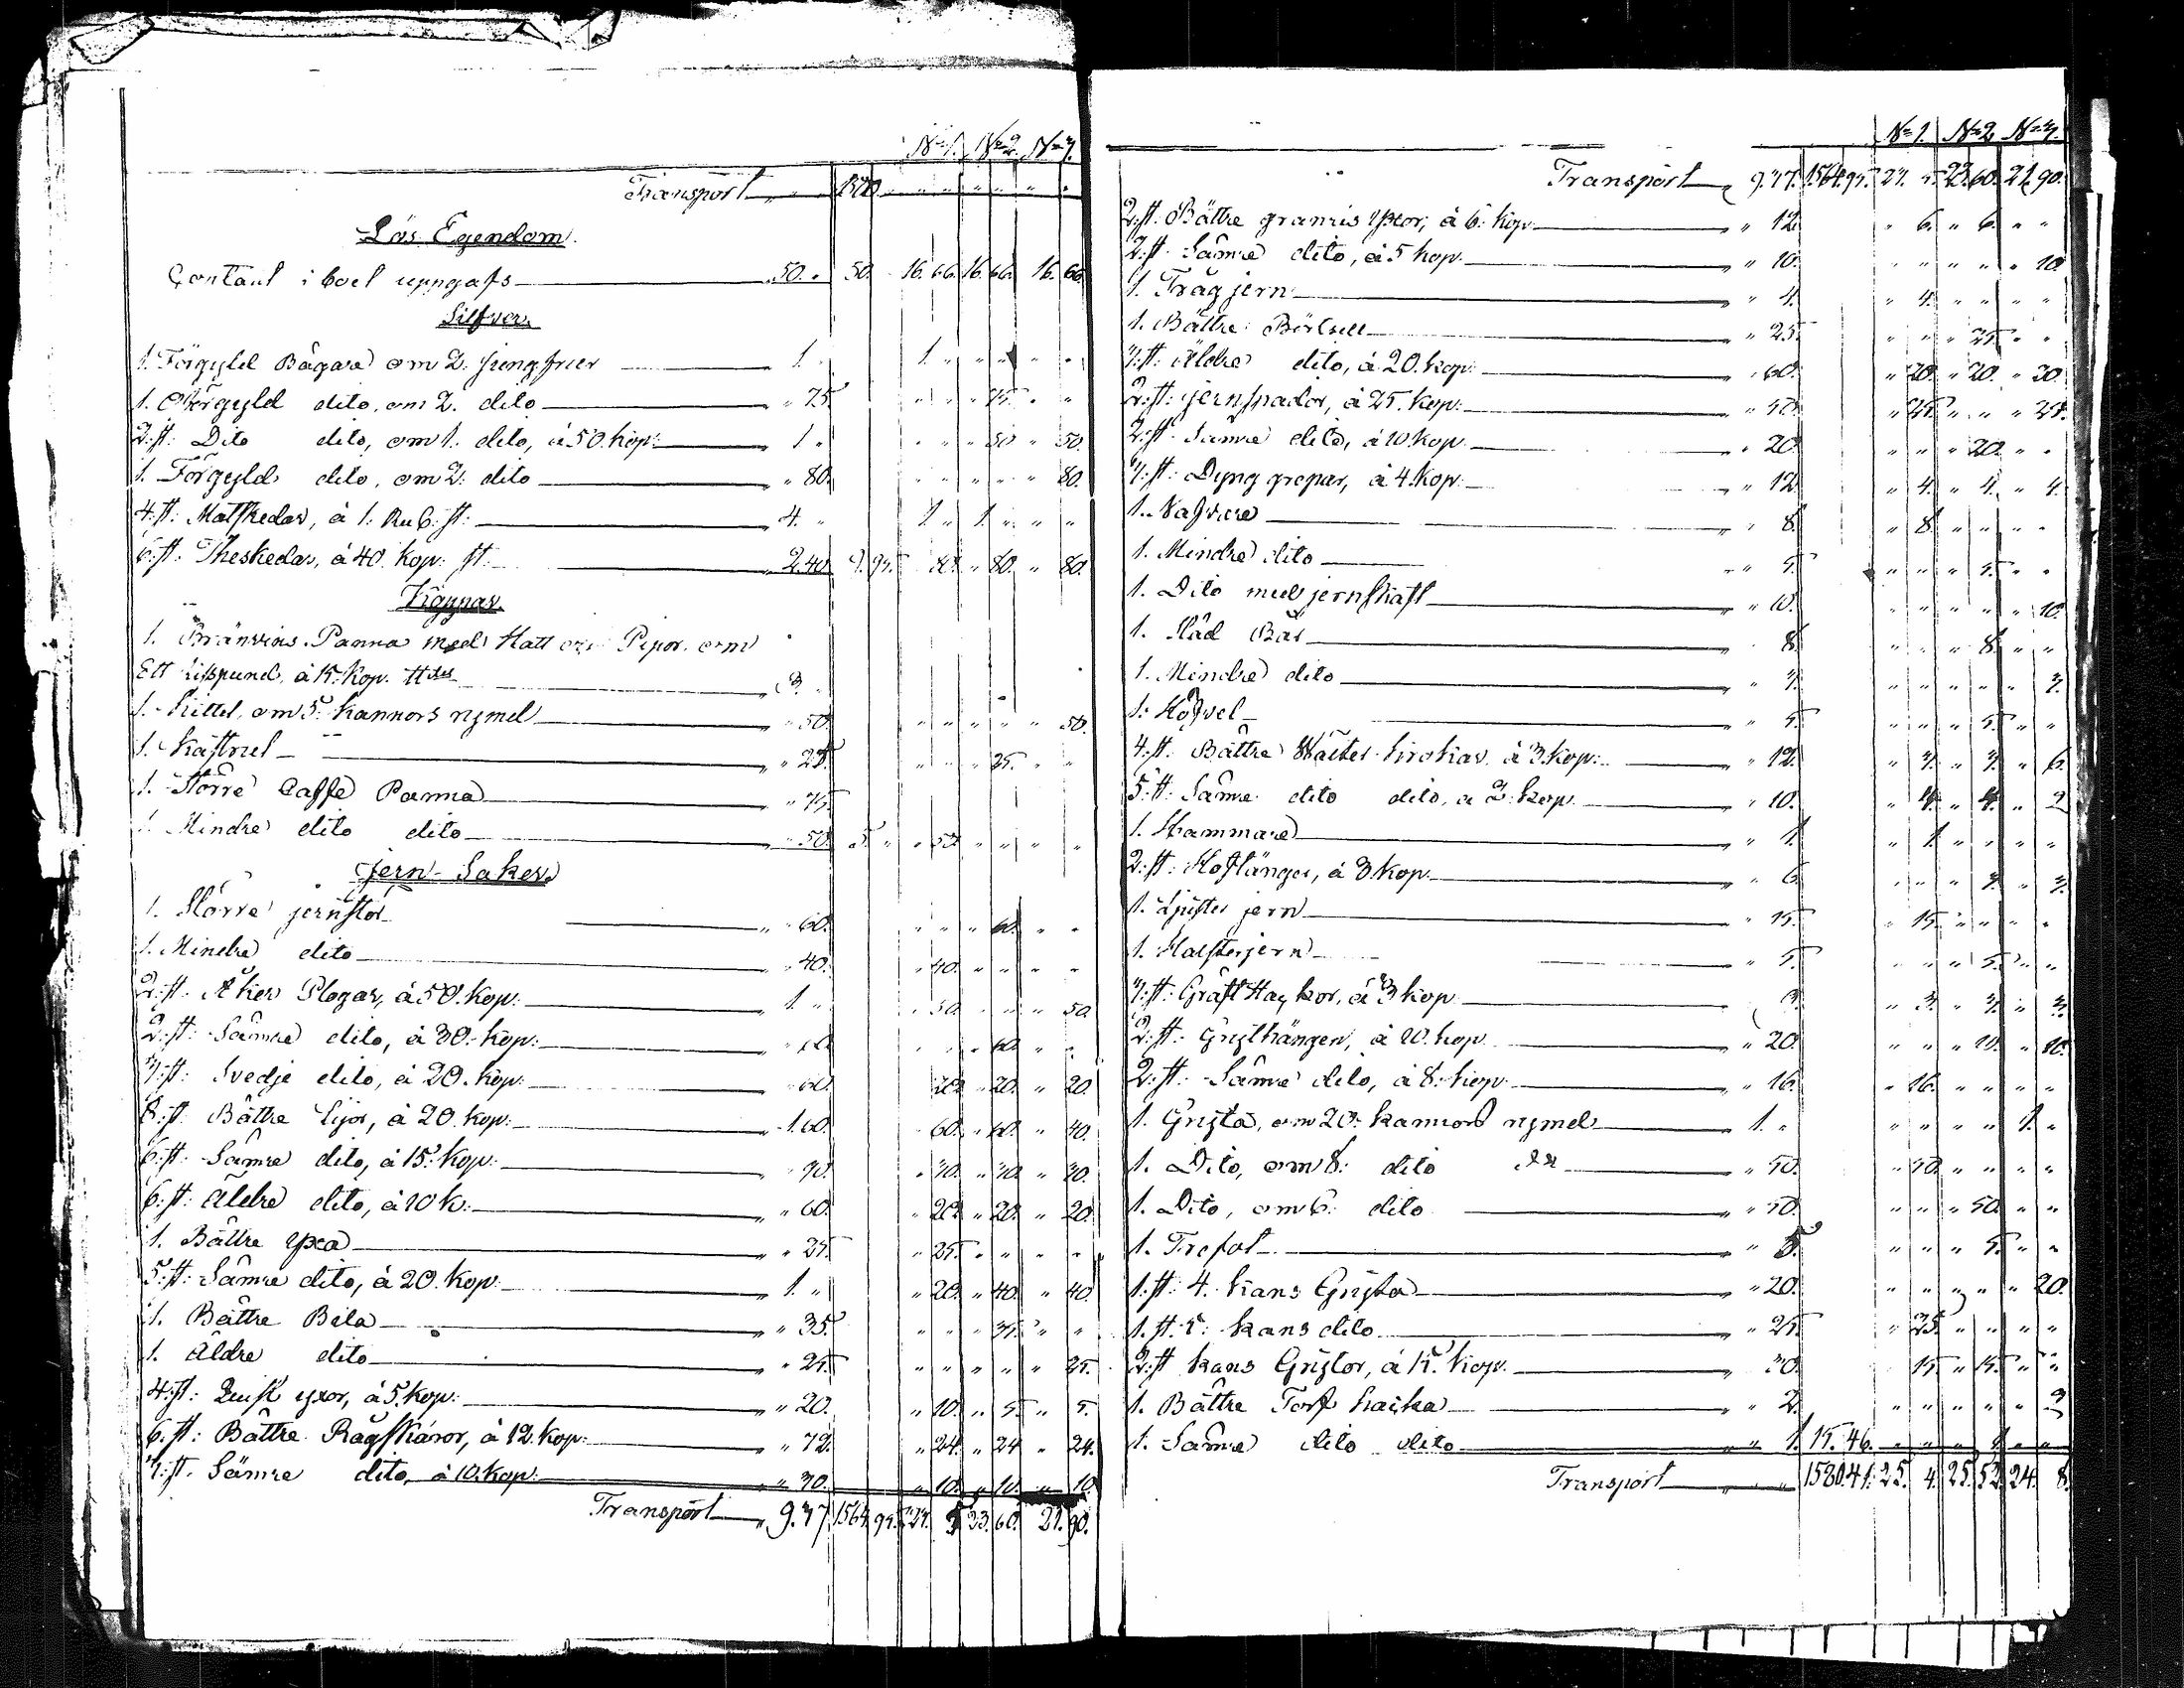 N:1. N:2. N:3.
Transport " 1500. " " " " " "
Lös Egendom.
Contant i boet uppgafs 50. " 50. " 16. 66. 16. 66. 16. 66.
Silfver.
1. Förgyld Bägare om 2. jungfrur 1 " 1 " " " " "
1. Oförgyld dito, om 2. dito " 75. " " " 75. " "
2:st: Dito dito, om 1. dito, à 50. kop: 1 " " " " 50 " 50.
1. Förgyld dito, om 2: dito " 80. " " " " " 80.
4:st: Matskedar, à 1: Rub: st: 4. " 1 " 1 " " "
6:st: Theskedar, à 40 kop: st. 2.40. 9.95. 80. " 80. " 80.
Koppar.
1. Bränvins Panna med Hatt och Pipor om
Ett Lispund, à 15. kop. 3 "
1. Kittel, om 5. kannors rymd " 50. " " " " " 50.
1. Kastrul " 25. " " " 25. " "
1. Större Caffe Panna " 75
1. Mindre dito dito " 50. 5. " " 50. " " " "
Jern-Saker
1. Större jernstör " 60. " " " 60. " "
1. Mindre dito " 40. " 40. " " " "
2:st. Åker Plogar, à 50. kop: 1 " " 50. " " " 50
2:st: Sämre dito, à 30. kop: " 60. " " " 60. " "
3:st: Svedje dito, à 20. kop: " 60. 20. " 20. " 20.
8:st: Bättre Lijor, à 20 kop: 1.60. 60. " 60. " 40.
6:st. Sämre dito, à 15: kop: " 90. " 30. " 30. " 30.
6:st: Äldre dito, à 10 k: " 60. " 20. " 20. " 20.
1. Bättre yxa " 25. " 25. " " " "
5:st: Sämre dito, à 20. kop: 1. " " 20. " 40. " 40.
1. Bättre Bila " 35. " " " 35. " "
1. Äldre dito " 25. " " " " " 25.
4:st: yxor, à 5. kop: " 20. " 10. " 5. " 5.
6.st: Bättre Rågskäror, à 12. kop: " 72. " 24. " 24 " 24.
3:st. Sämre dito, à 10. kop: " 30. " 10. " 10. " 10
Transport " 9.37 1564.95. 27. 5 23.60. 21.90.
N:1. N:2. N:3.
Transport " 9.37. 1564.95. 27. 5. 23.60. 21.90.
2:st. Bättre granris yxor, à 6: kop " 12. " 6. " 6. " "
2:st. Sämre dito, à 5 kop. " 10. " " " " " 10.
1. Tråg jern " 4. " 4. " " " "
1. Bättre Betsell " 25. " " " 25. " "
3:st: Äldre dito, à 20. kop: " 60. " 20. " 20. " 20.
2:st: jernspador, à 25. kop: " 50. " 25. " " " 25.
2:st. Sämre dito, à 10 kop. " 20. " " " 20. " "
3:st: Dyng grepar, à 4 kop. " 12. " 4. " 4. " 4.
1. Nafvare " 8. " 8. " " " "
1. Mindre dito " 5. " " " 5. " "
1. Dito med jernskaft " 10. " " " " " 10.
1. Råd Bår 8. " " " 8. " "
1. Mindre dito " 3. " " " " " 3.
1. Höfvel " 5. " " " 5. " "
4:st: Bättre à 3. kop: " 12. " 3. " 3. " 6.
5:st: Sämre dito dito, à 2. kop. " 10. " 4. " 4. " 2
1. Hammare " 1. " 1. " " " "
2:st: Hoftänger, à 3. kop. " 6. " " " 3. " 3.
1. Ljuster jern " 15. " 15. " " " "
1. Halsterjern " 5. " " " 5. " "
3:st: Gräft Hackor, à 3 kop. 9 " 3. " 3. " 3.
2:st: Grythängen, à 10. kop. " 20. " " " 10. " 10.
2:st: Sämre dito, à 8: kop: " 16. " 16. " " " "
1. Gryta, om 20: kannors rymd 1. " " " " " 1. "
1. Dito, om 8: dito " 50. " 50. " " " "
1. Dito, om 6: dito " 50. " " " 50. " "
1. Trefot " 5. " " " 5. " "
1:st: 4. kans Gryta " 20. " " " " " 20.
1.st. 5: kans dito " 25. " 25. " " " "
2:st kans Grytor, à 15. kop. " 30. 15. " 15. " "
1. Bättre Torf hacka " 2. " " " " " 2
1. Sämre dito dito " 1. 15.46. " " " 1. " "
Transport " " 1580.41. 25. 4. 25. 52. 24. 8.